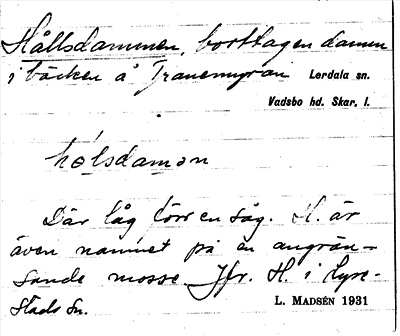 Hållsdammen, borttagen damm
i bäcken å Tranemyran Lerdala sn.
Vadsbo hd. Skar. l.
hålsdamən
Där låg förr en såg. H. är
även namnet på en angrän-
sande mosse. Jfr. H. i Hyre-
stads sn. L. MADSÉN 1931